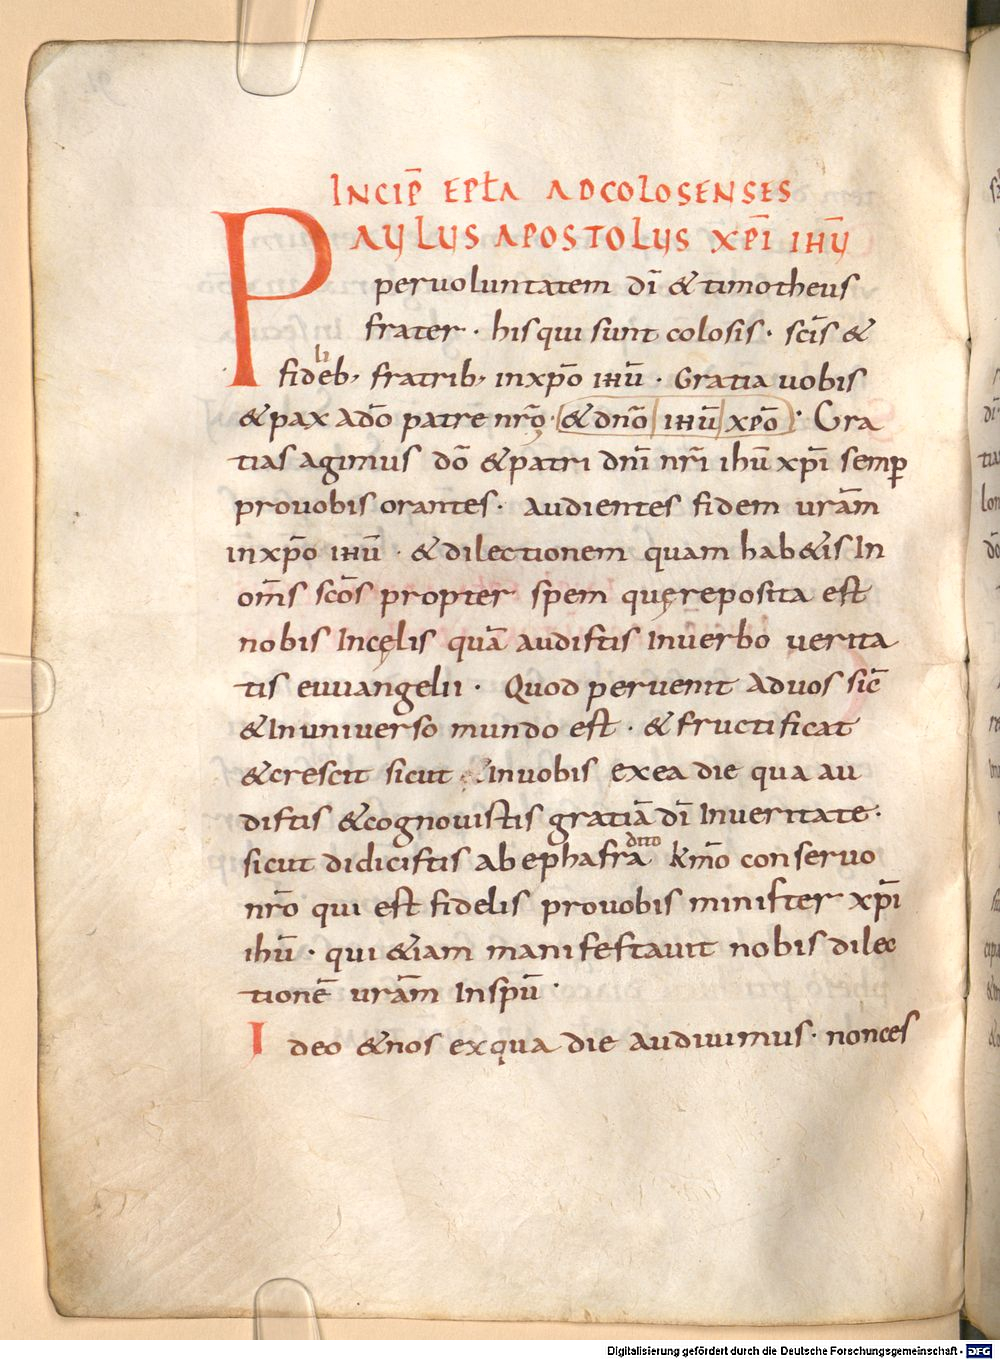 INCIP̄ EPŁA ADCOLOSENSES
PAULUS APOSTOLUS XP̄I IHŪ
per uoluntatem dī & timotheus
frater · his qui sunt colosis · sc̄is &
li
fideb; fratrib; inxp̄o ihū · Gratia uobis
& pax adō patre nr̄o · & dn̄o ihū xp̄o · Gra
tias agimus dō & patri dn̄i nr̄i ihū xp̄i semp̄
prouobis orantes · Audientes fidem ur̄am
inxp̄o ihū · & dilectionem quam hab&is In
om̄s sc̄os propter spem quę reposita est
nobis Incęlis quā audistis Inuerbo uerita
tis euuangelii · Quod peruenit Aduos sic̄
& Inuniuerso mundo est · & fructificat
& crescit sicut Inuobis exea die qua au
distis & cognouistis gratiā dī Inueritate ·
sicut didicistis ab ephafrā dito km̄o conseruo
nr̄o qui est fidelis prouobis minister xp̄i
ihū · qui &iam manifestauit nobis dilec
tionē ur̄am Inspū ·
Ideo & nos exqua die audiuimus · nonces
Digitalisierung gefördert durch die Deutsche Forschungsgemeinschaft - DFG